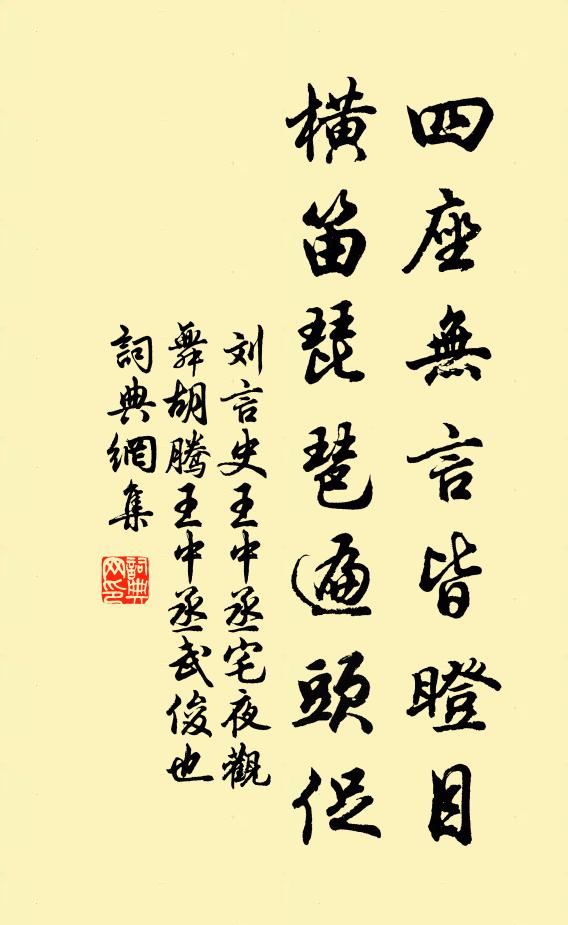 四座無言皆瞪目
橫笛琵琶遍頭促
刘言史王中丞宅夜觀
舞胡騰王中丞武俊也
詞典網集
詞典网印